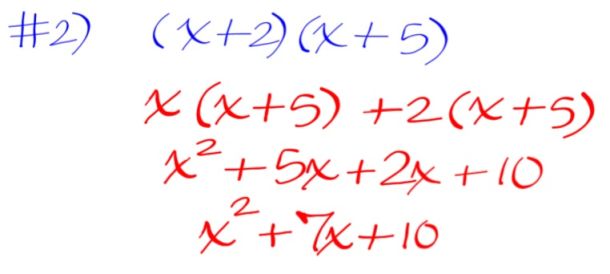 #2) (x+2)(x+5)
x(x+5) +2(x+5)
x²+5x+2x+10
x²+7x+10